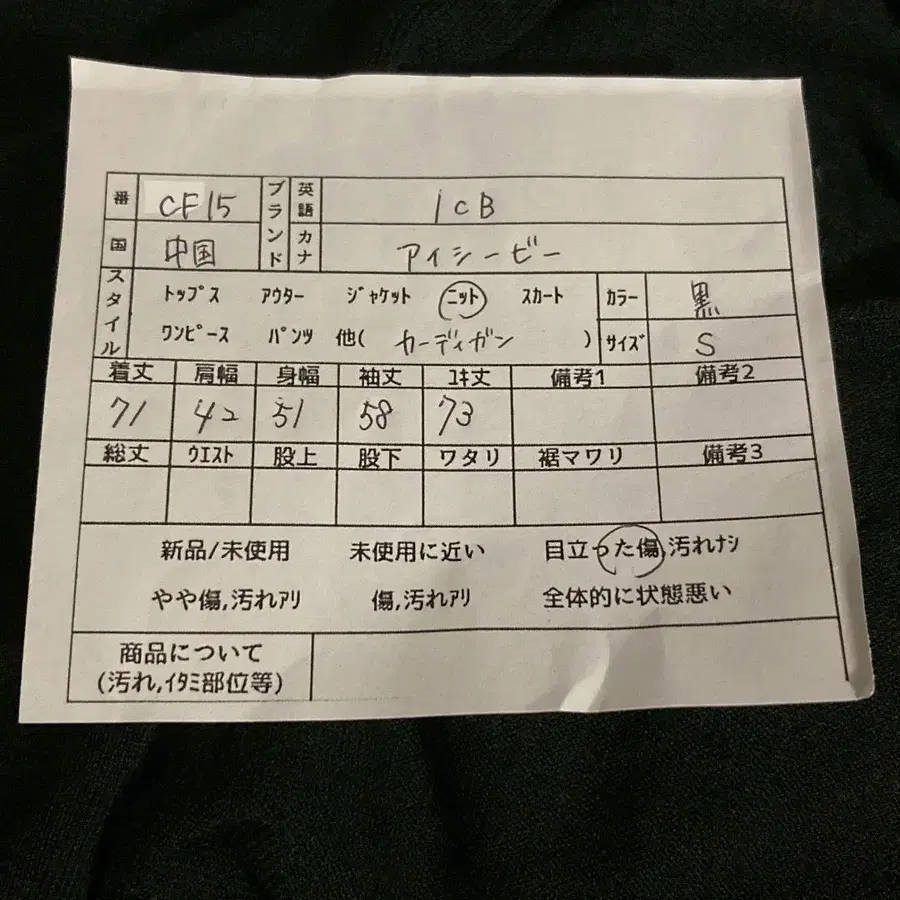 番 CF15 ブランド 英語 ICB
国 中国 カナ アイシービー
スタイル トップス アウター ジャケット ニット スカート カラー 黒
ワンピース パンツ 他( カーディガン ) サイズ S
着丈 肩幅 身幅 袖丈 ユキ丈 備考1 備考2
71 42 51 58 73
総丈 ウエスト 股上 股下 ワタリ 裾マワリ 備考3
新品/未使用 未使用に近い 目立った傷,汚れナシ
やや傷,汚れアリ 傷,汚れアリ 全体的に状態悪い
商品について
(汚れ,イタミ部位等)